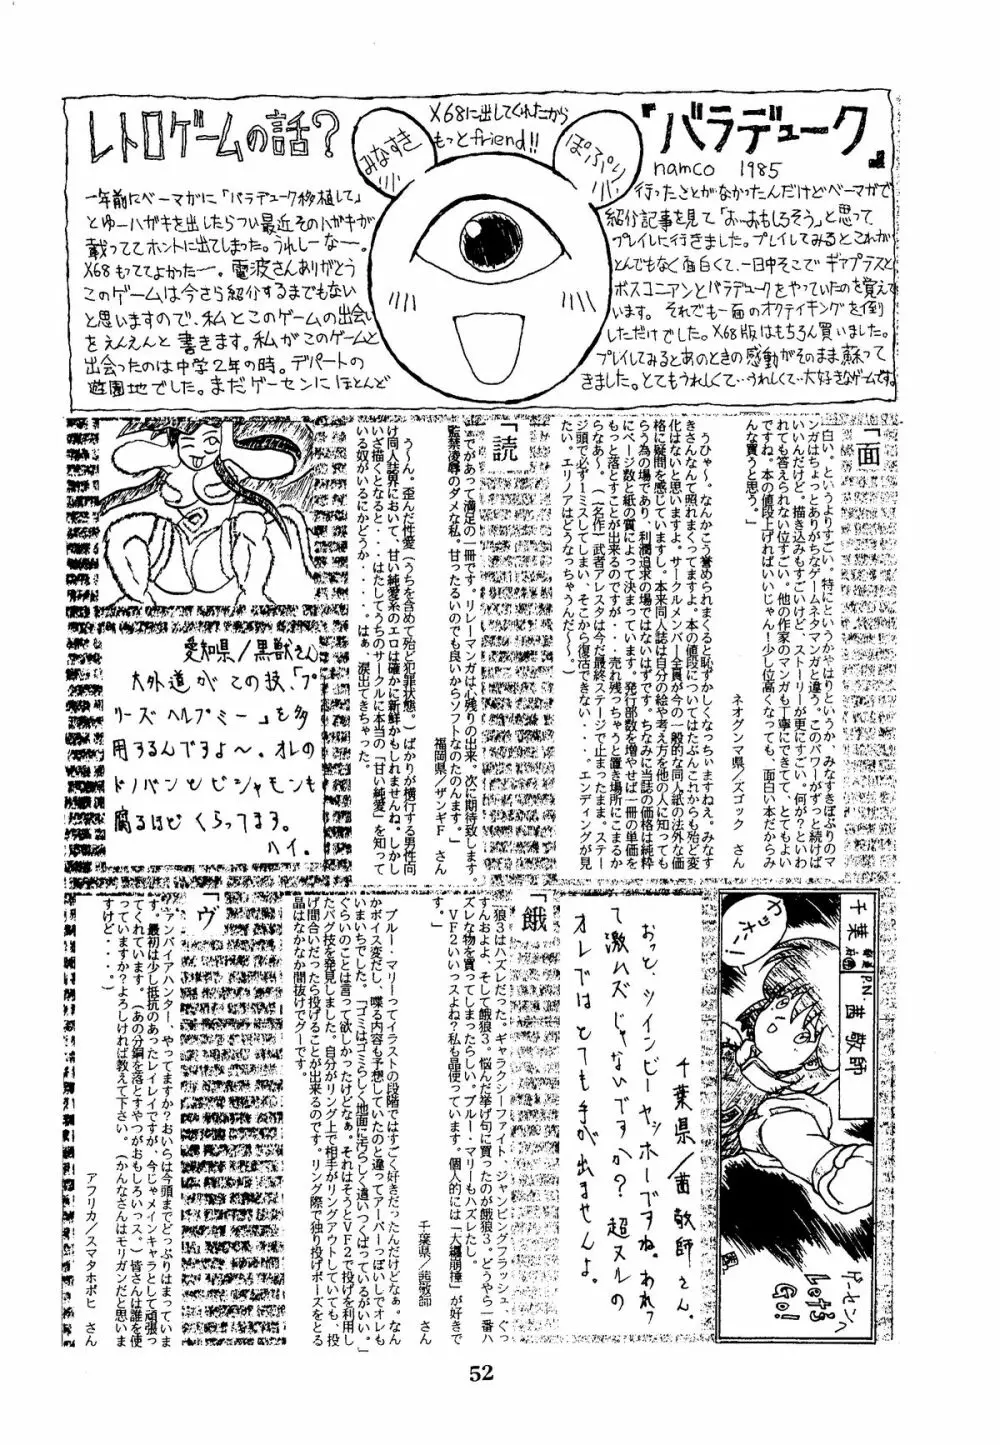 レトロゲームの話?
みなすき
X68に出してくれたから
もっとfriend!!
ぽぷり
『バラデューク』
namco 1985
一年前にベーマガに「バラデューク移植して」
とゆーハガキを出したらつい最近そのハガキが
載っててホントに出てしまった。うれしーなー。
X68もっててよかったー。電波さんありがとう
このゲームは今さら紹介するまでもない
と思いますので、私とこのゲームの出会い
をえんえんと書きます。私がこのゲームと
出会ったのは中学2年の時。デパートの
遊園地でした。まだゲーセンにほとんど
行ったことがなかったんだけどベーマガで
紹介記事を見て「おーおもしろそう」と思って
プレイしに行きました。プレイしてみるとこれが
とんでもなく面白くて、一日中そこでギアプラスと
ボスコニアンとバラデュークをやっていたのを覚えて
います。それでも一面のオクティキングを倒
しただけでした。X68版はもちろん買いました。
プレイしてみるとあのときの感動がそのまま蘇って
きました。とてもうれしくて…うれしくて…大好きなゲームです。
「面
白い、というよりすごい。特にというかやはりというか、みなすきぽぷりのマ
ンガはちょっとありがちなゲームネタマンガと違う。このパワーがずっと続けば
いいんだけど。描き込みもすごいけど、ストーリーが更にすごい。何が?といわ
れても答えられない位すごい。他の作家のマンガも丁寧にできてて、とてもよい
ですね。本の値段上げればいいじゃん!少し位高くなっても、面白い本だからみ
んな買うと思う。」
ネオグンマ県/ズゴック さん
うひゃ〜。なんかこう誉められまくると恥ずかしくなっちぃますねえ。みなす
きさんなんて照れまくってますよ。本の値段についてはたぶんこれからも殆ど変
化はないと思いますよ。サークルメンバー全員が今の一般的な同人紙の法外な価
格に疑問を感じていますし、本来同人誌は自分の絵や考え方を他の人に知っても
らう為の場であり、利潤追求の場ではないはずです。ちなみに当誌の価格は純粋
にページ数と紙の質によって決まっています。発行部数を増やせば一冊の単価を
もっと落とすことが出来るのですが・・・売れ残っちゃうと置き場所にこまるか
らなあ〜。(一名作)武者アレスタは今だ最終ステージで止まったまま、ステー
ジ頭で必ず一ミスしてしまい、そこから復活できない・・・。エンディングが見
たい。エリノアはどうなっちゃうんだ〜〜)。
「読
んでがあって満足の一冊です。リレーマンガは心残りの出来。次に期待致します。
監禁凌辱のダメな私。甘ったるいのでも良いからソフトなのたのんます。」
福岡県/ザンギF さん
う〜ん。歪んだ性愛(うちを含めて殆ど犯罪状態。)ばかりが横行する男性向
け同人誌界において、甘い純愛系のエロは確かに新鮮かもしれませんね。しかし
いざ描くとなると・・・はたしてうちのサークルに本当の「甘い純愛」を知って
いる奴がいるにかどうか・・・・・はぁ。涙出てきちゃった。
愛知県/黒獣さん
大外道がこの技、「プ
リーズヘルプミー」を多
用するんですよ〜。オレの
ドノバンとビシャモンも
腐るほどくらってます。
ハイ。
千葉
P.N.
茜 敬師
ヤッホー!
ゲーセンへ
Let's
Go!
千葉県/茜敬師さん。
おっと、ツインビーヤッホーですね。われっ
て激ムズじゃないですか?超ヌルの
オレではとても手が出ませんよ。
「餓
狼3はハズレだった。ギャラクシーファイト、ジャンピングフラッシュ、ぐっ
すんおよよ、そして餓狼3。悩んだ挙げ句に買ったのが餓狼3。どうやら一番ハ
ズレな物を買ってしまったらしい。ブルー・マリーもハズレたし。
VF2いいっスよね?私も晶使っています。個人的には「大纏崩捶」が好きで
す。」
千葉県/茜敬師 さん
ブルー・マリーってイラストの段階ではすごく好きだったんだけどなぁ。なん
かボイス変だし、喋る内容も予想していたのと違ってアーパーっぽいしでオレも
いまいちでした。「ゴミはゴミらしく地面に汚らしく這いつくばっているがいい。」
ぐらいのことは言って欲しかったけどなぁ。それはそうとVF2で投げを利用し
たバグ技を発見しました。自分がリング上で相手がリングアウトしていても、投
げ間合いだったら投げることが出来るのです。リング際で独り投げポーズをとる
晶はなかなか間抜けでグーです。
「ヴ
アンパイアハンター、やってますか?おいらは今頭までどっぷりはまっていま
す。最初は少し抵抗のあったレイレイですが、今じゃメインキャラとして頑張っ
てくれています。(あの分銅を落とすやつがおもしろいっス。)皆さんは誰を使
っていますか?よろしければ教えて下さい。(かんなさんはモリガンだと思いま
すけど・・・。)」
アフリカ/スマタホポヒ さん
52